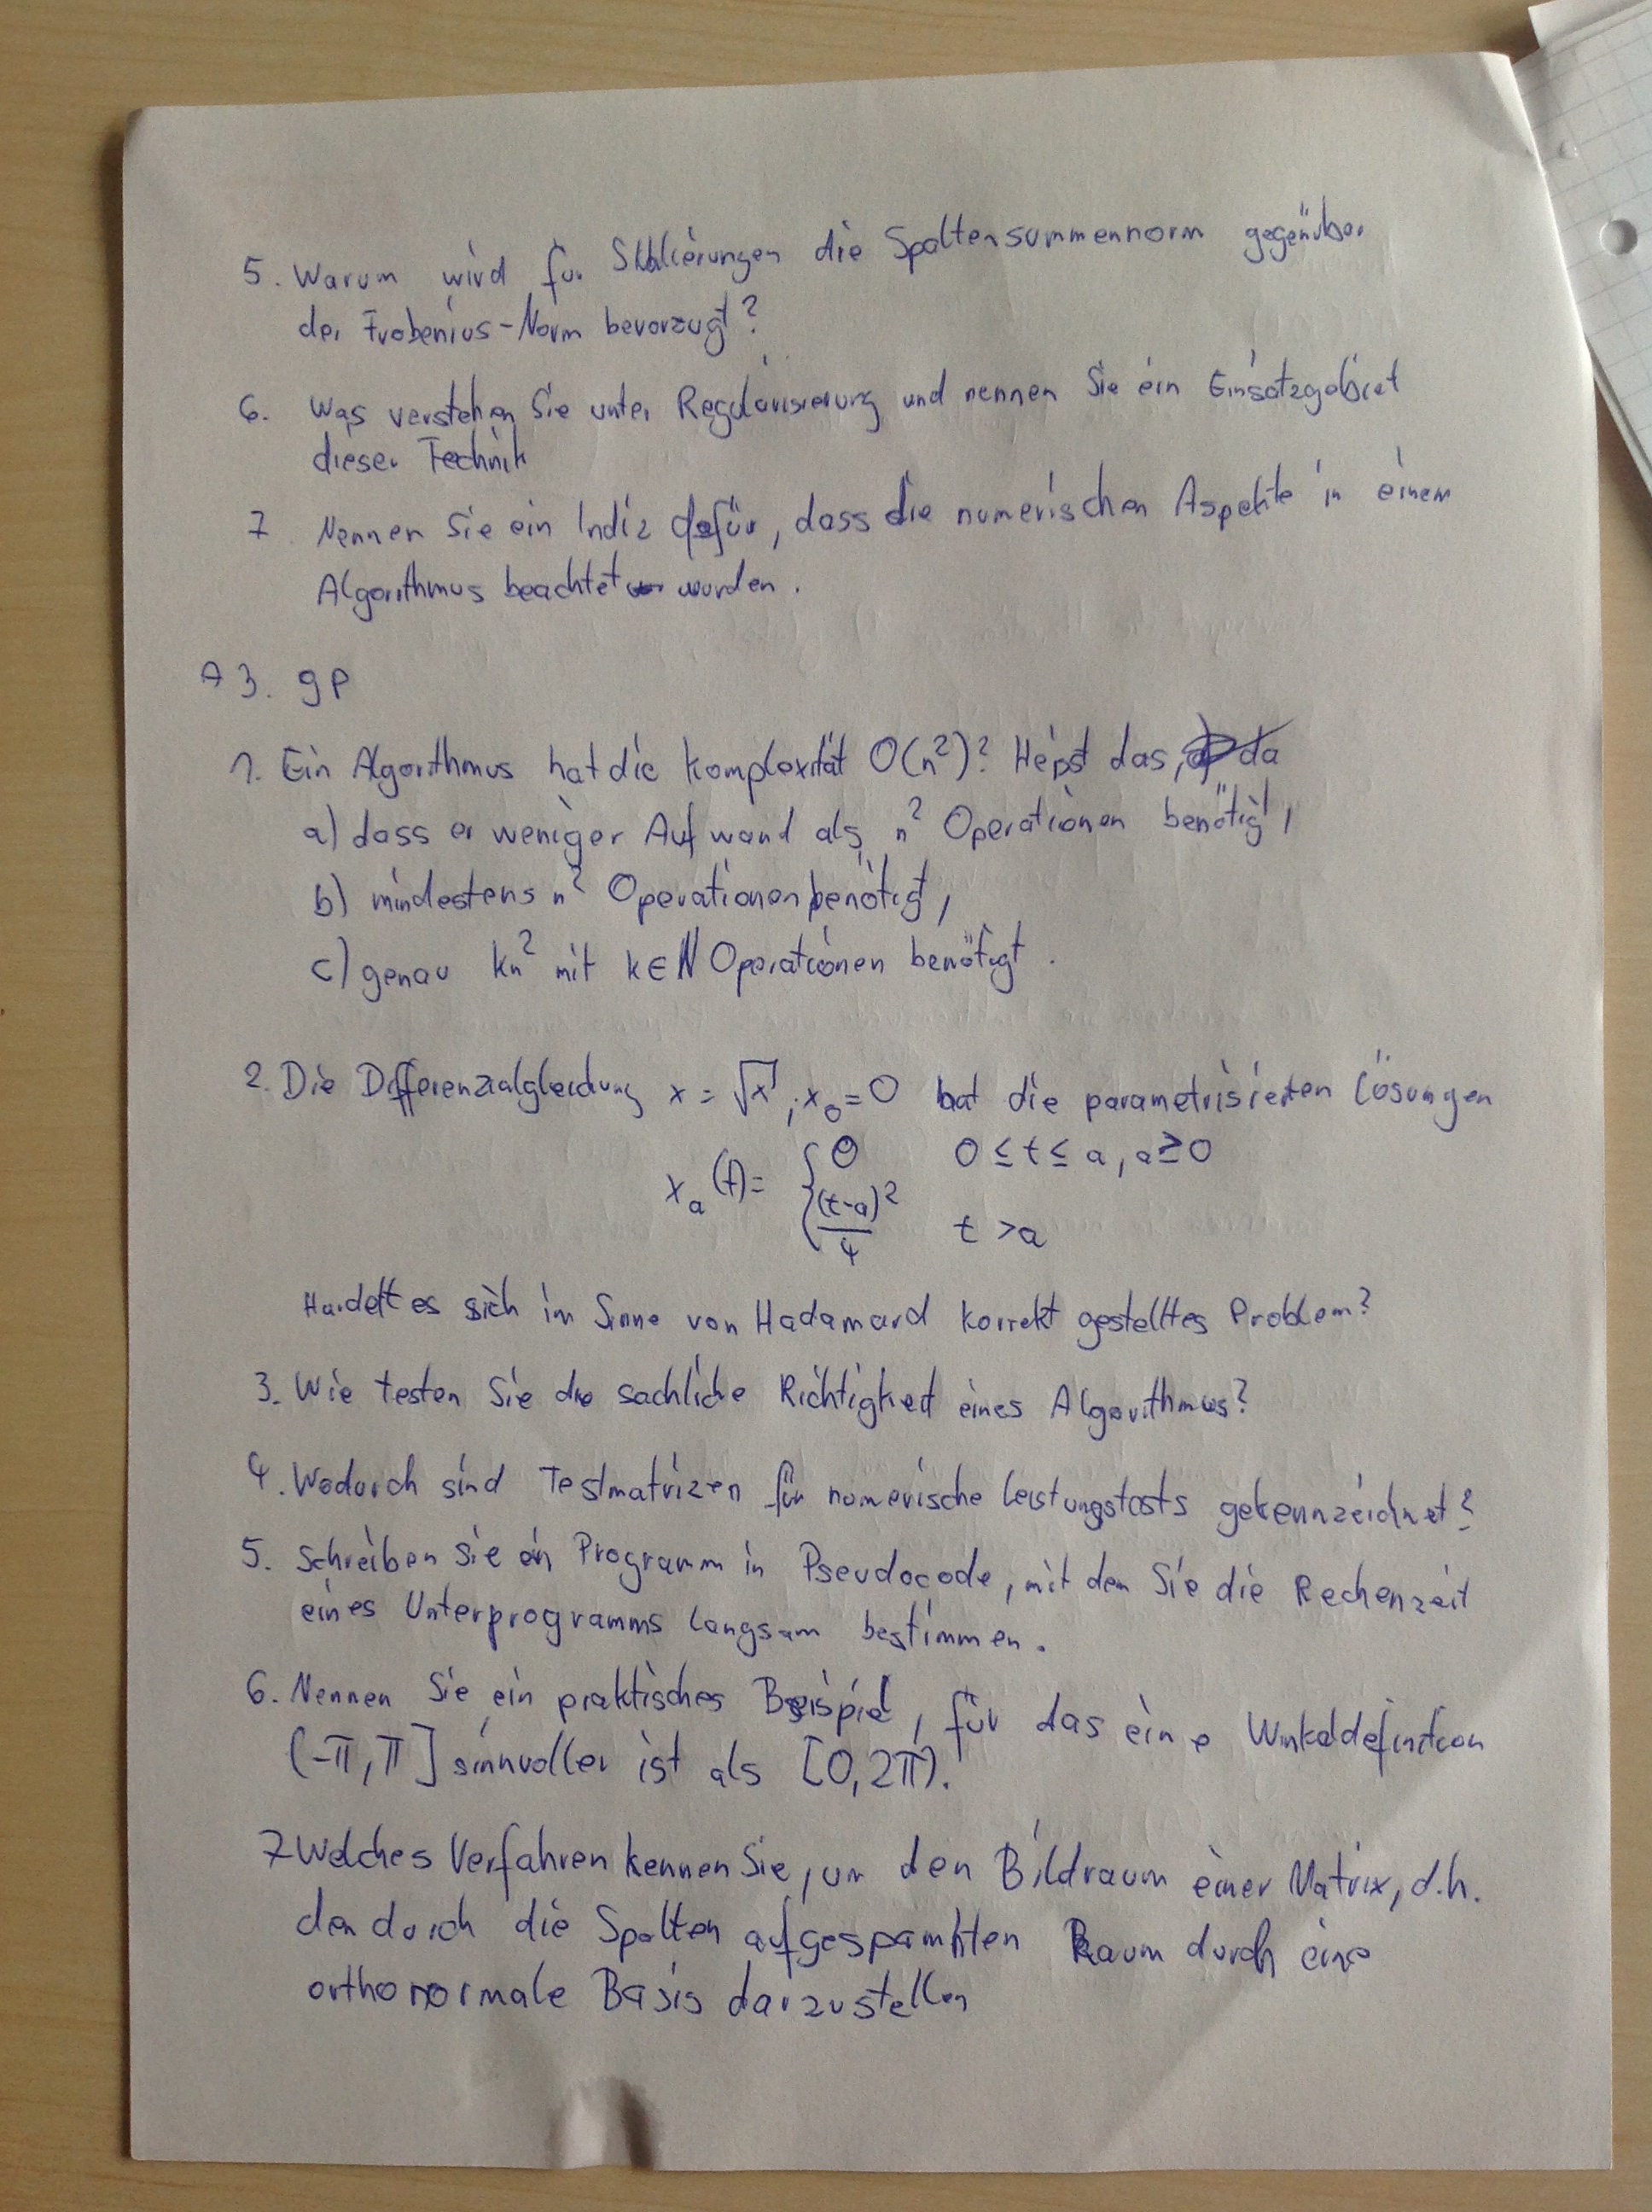 5. Warum wird für Skalierungen die Spaltensummennorm gegenüber
der Frobenius-Norm bevorzugt?
6. Was verstehen Sie unter Regularisierung und nennen Sie ein Einsatzgebiet
dieser Technik
7. Nennen Sie ein Indiz dafür, dass die numerischen Aspekte in einem
Algorithmus beachtet wurden.
A3. 9P
1. Ein Algorithmus hat die Komplexität O(n²)? Heißt das, da
a) dass er weniger Aufwand als n² Operationen benötigt,
b) mindestens n² Operationen benötigt,
c) genau kn² mit k∈ℕ Operationen benötigt.
2. Die Differenzialgleichung x = √x, x₀=0 hat die parametrisierten Lösungen
xₐ(t)= { 0 0 ≤ t ≤ a, a≥0
(t-a)²/4 t > a
Handelt es sich im Sinne von Hadamard korrekt gestelltes Problem?
3. Wie testen Sie die sachliche Richtigkeit eines Algorithmus?
4. Wodurch sind Testmatrizen für numerische Leistungstests gekennzeichnet?
5. Schreiben Sie ein Programm in Pseudocode, mit dem Sie die Rechenzeit
eines Unterprogramms langsam bestimmen.
6. Nennen Sie ein praktisches Beispiel, für das eine Winkeldefinition
(-π, π] sinnvoller ist als [0, 2π).
7 Welches Verfahren kennen Sie, um den Bildraum einer Matrix, d.h.
den durch die Spalten aufgespannten Raum durch eine
orthonormale Basis darzustellen